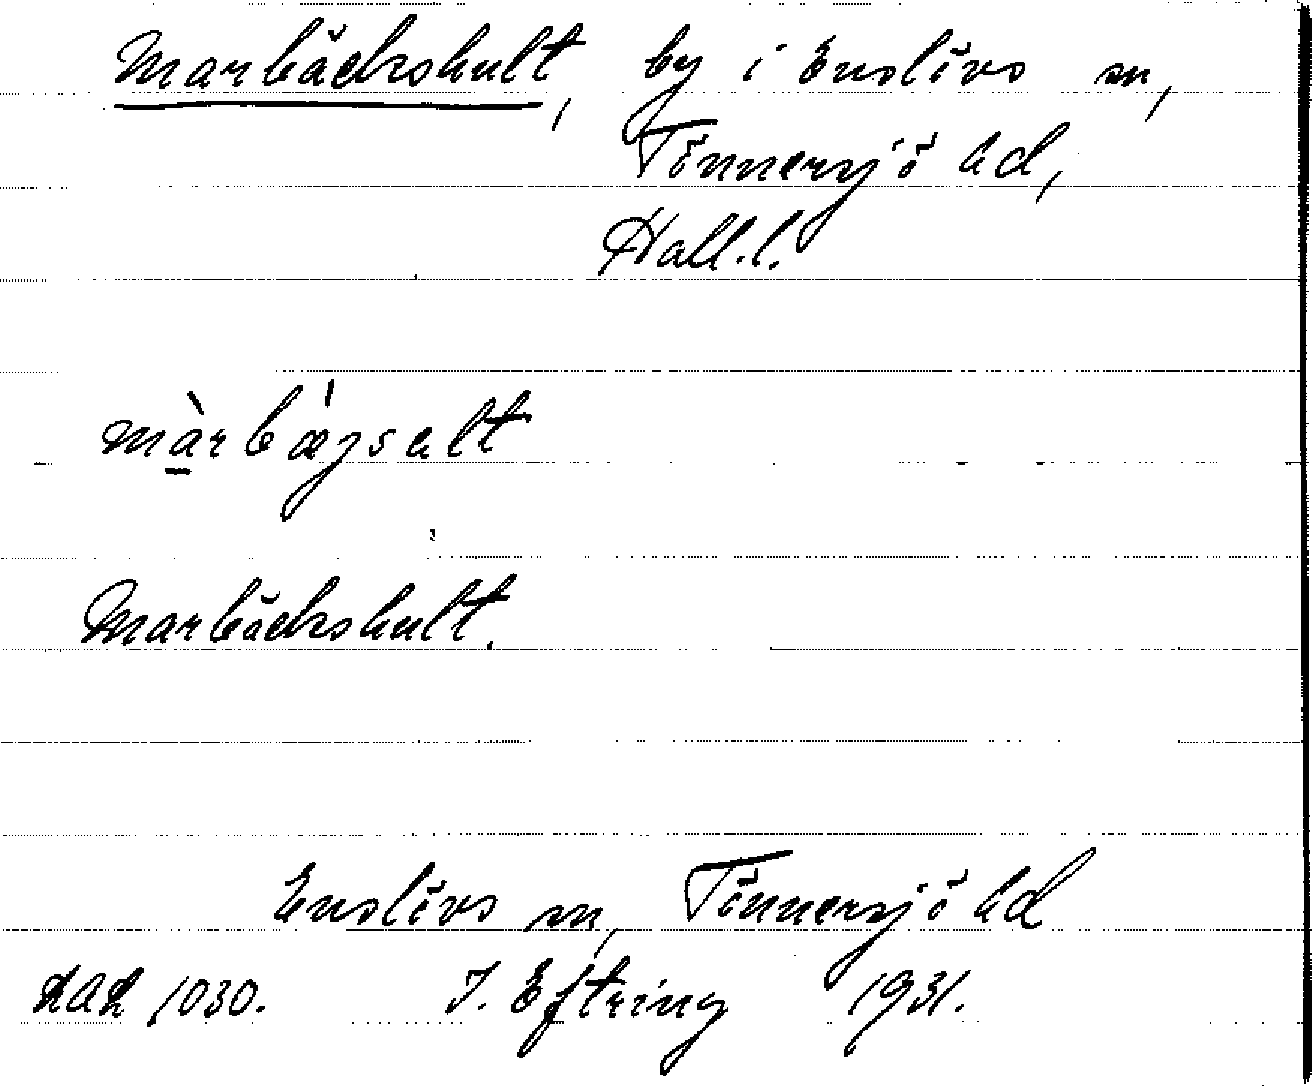 Marbäckshult, by i Enslövs sn,
Tönnersjö hd,
Hall.l.
màrbǽgsult
Marbäckshult.
Enslövs sn, Tönnersjö hd
LAL 1030. I. Eftring 1931.